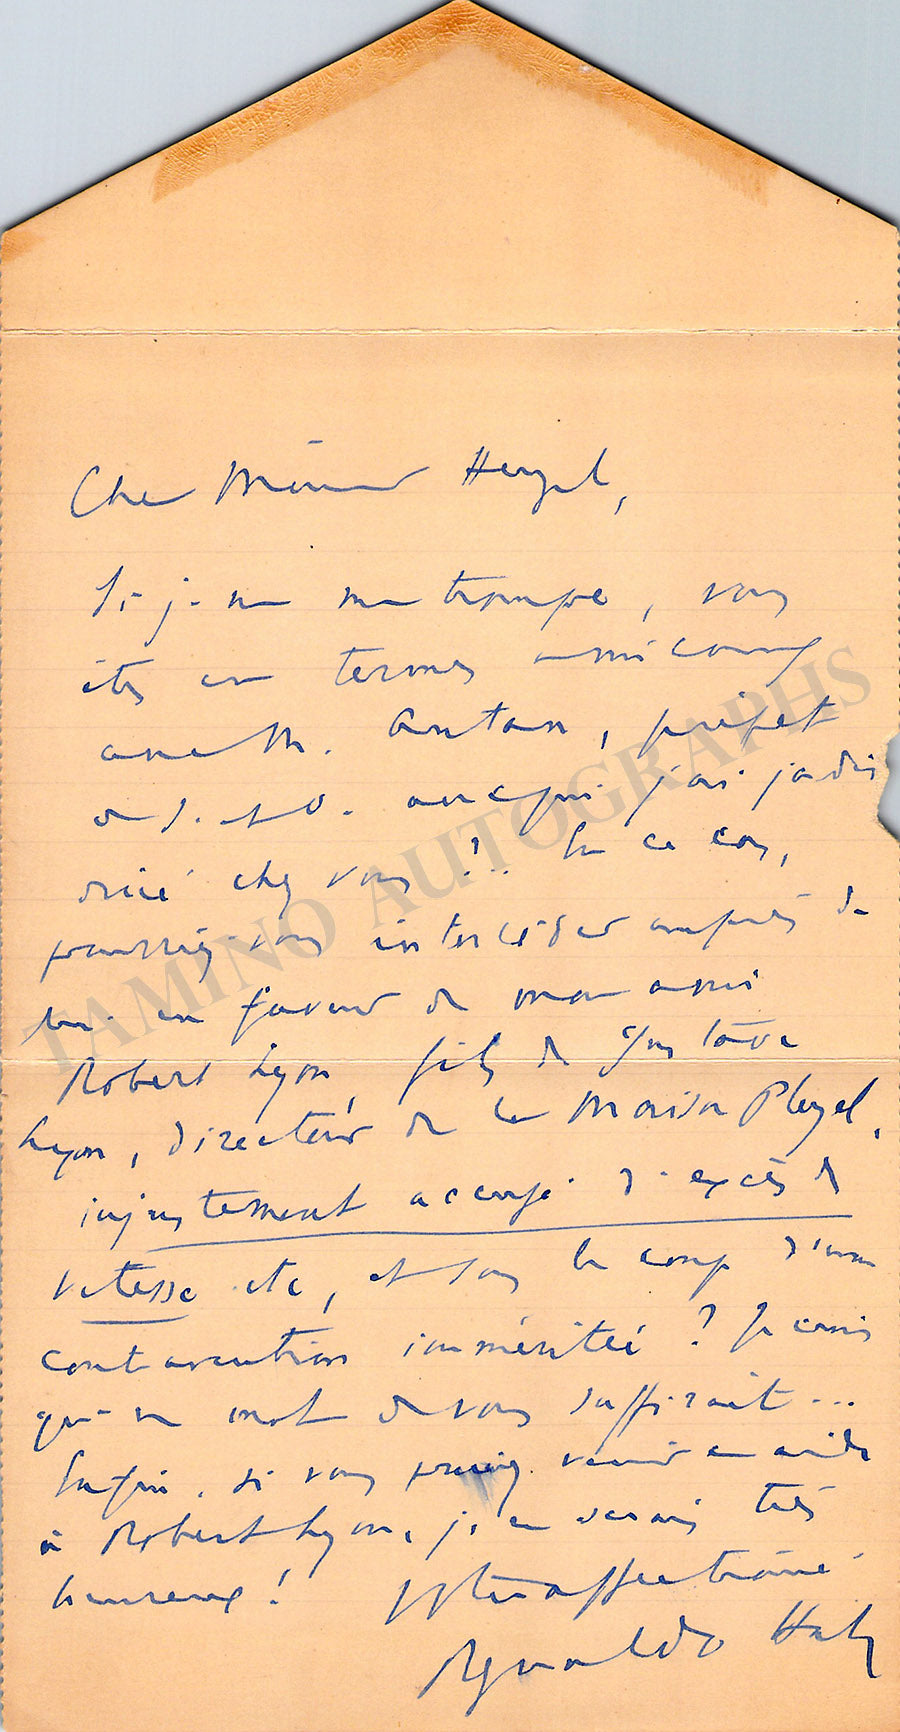 Cher Monsieur Heugel,
Si je ne me trompe, vous
êtes en termes amicaux
avec M. Autan, préfet
de S. et O. avec qui j'ai jadis
dîné chez vous ?.. En ce cas,
pourriez-vous intercéder auprès de
lui en faveur de mon ami
Robert Lyon, fils de Gustave
Lyon, directeur de la Maison Pleyel,
injustement accusé d'excès de
vitesse etc, et sous le coup d'une
contravention imméritée ? Je crois
qu'un mot de vous suffirait...
Enfin, si vous pouviez venir en aide
à Robert Lyon, j'en serais très
heureux !
Vtre affectionné
Reynaldo Hahn
TAMINO AUTOGRAPHS